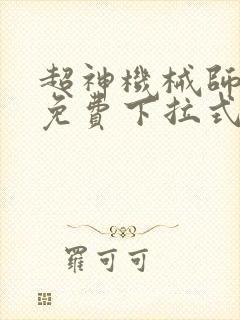 超神機械師
免費下拉式
羅可可